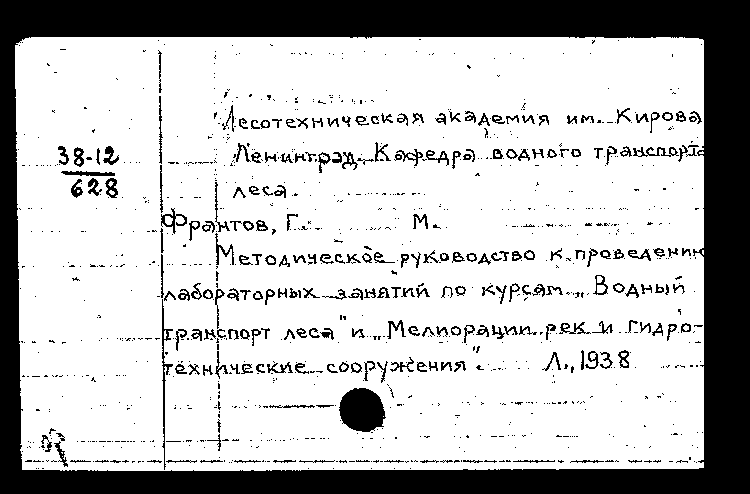 Лесотехническая академия им. Кирова
38-12
628
Ленинград. Кафедра водного транспорта
леса.
Франтов, Г. М.
Методическое руководство к проведению
лабораторных занятий по курсам „Водный
транспорт леса" и „Мелиорации рек и гидро-
технические сооружения". Л., 1938